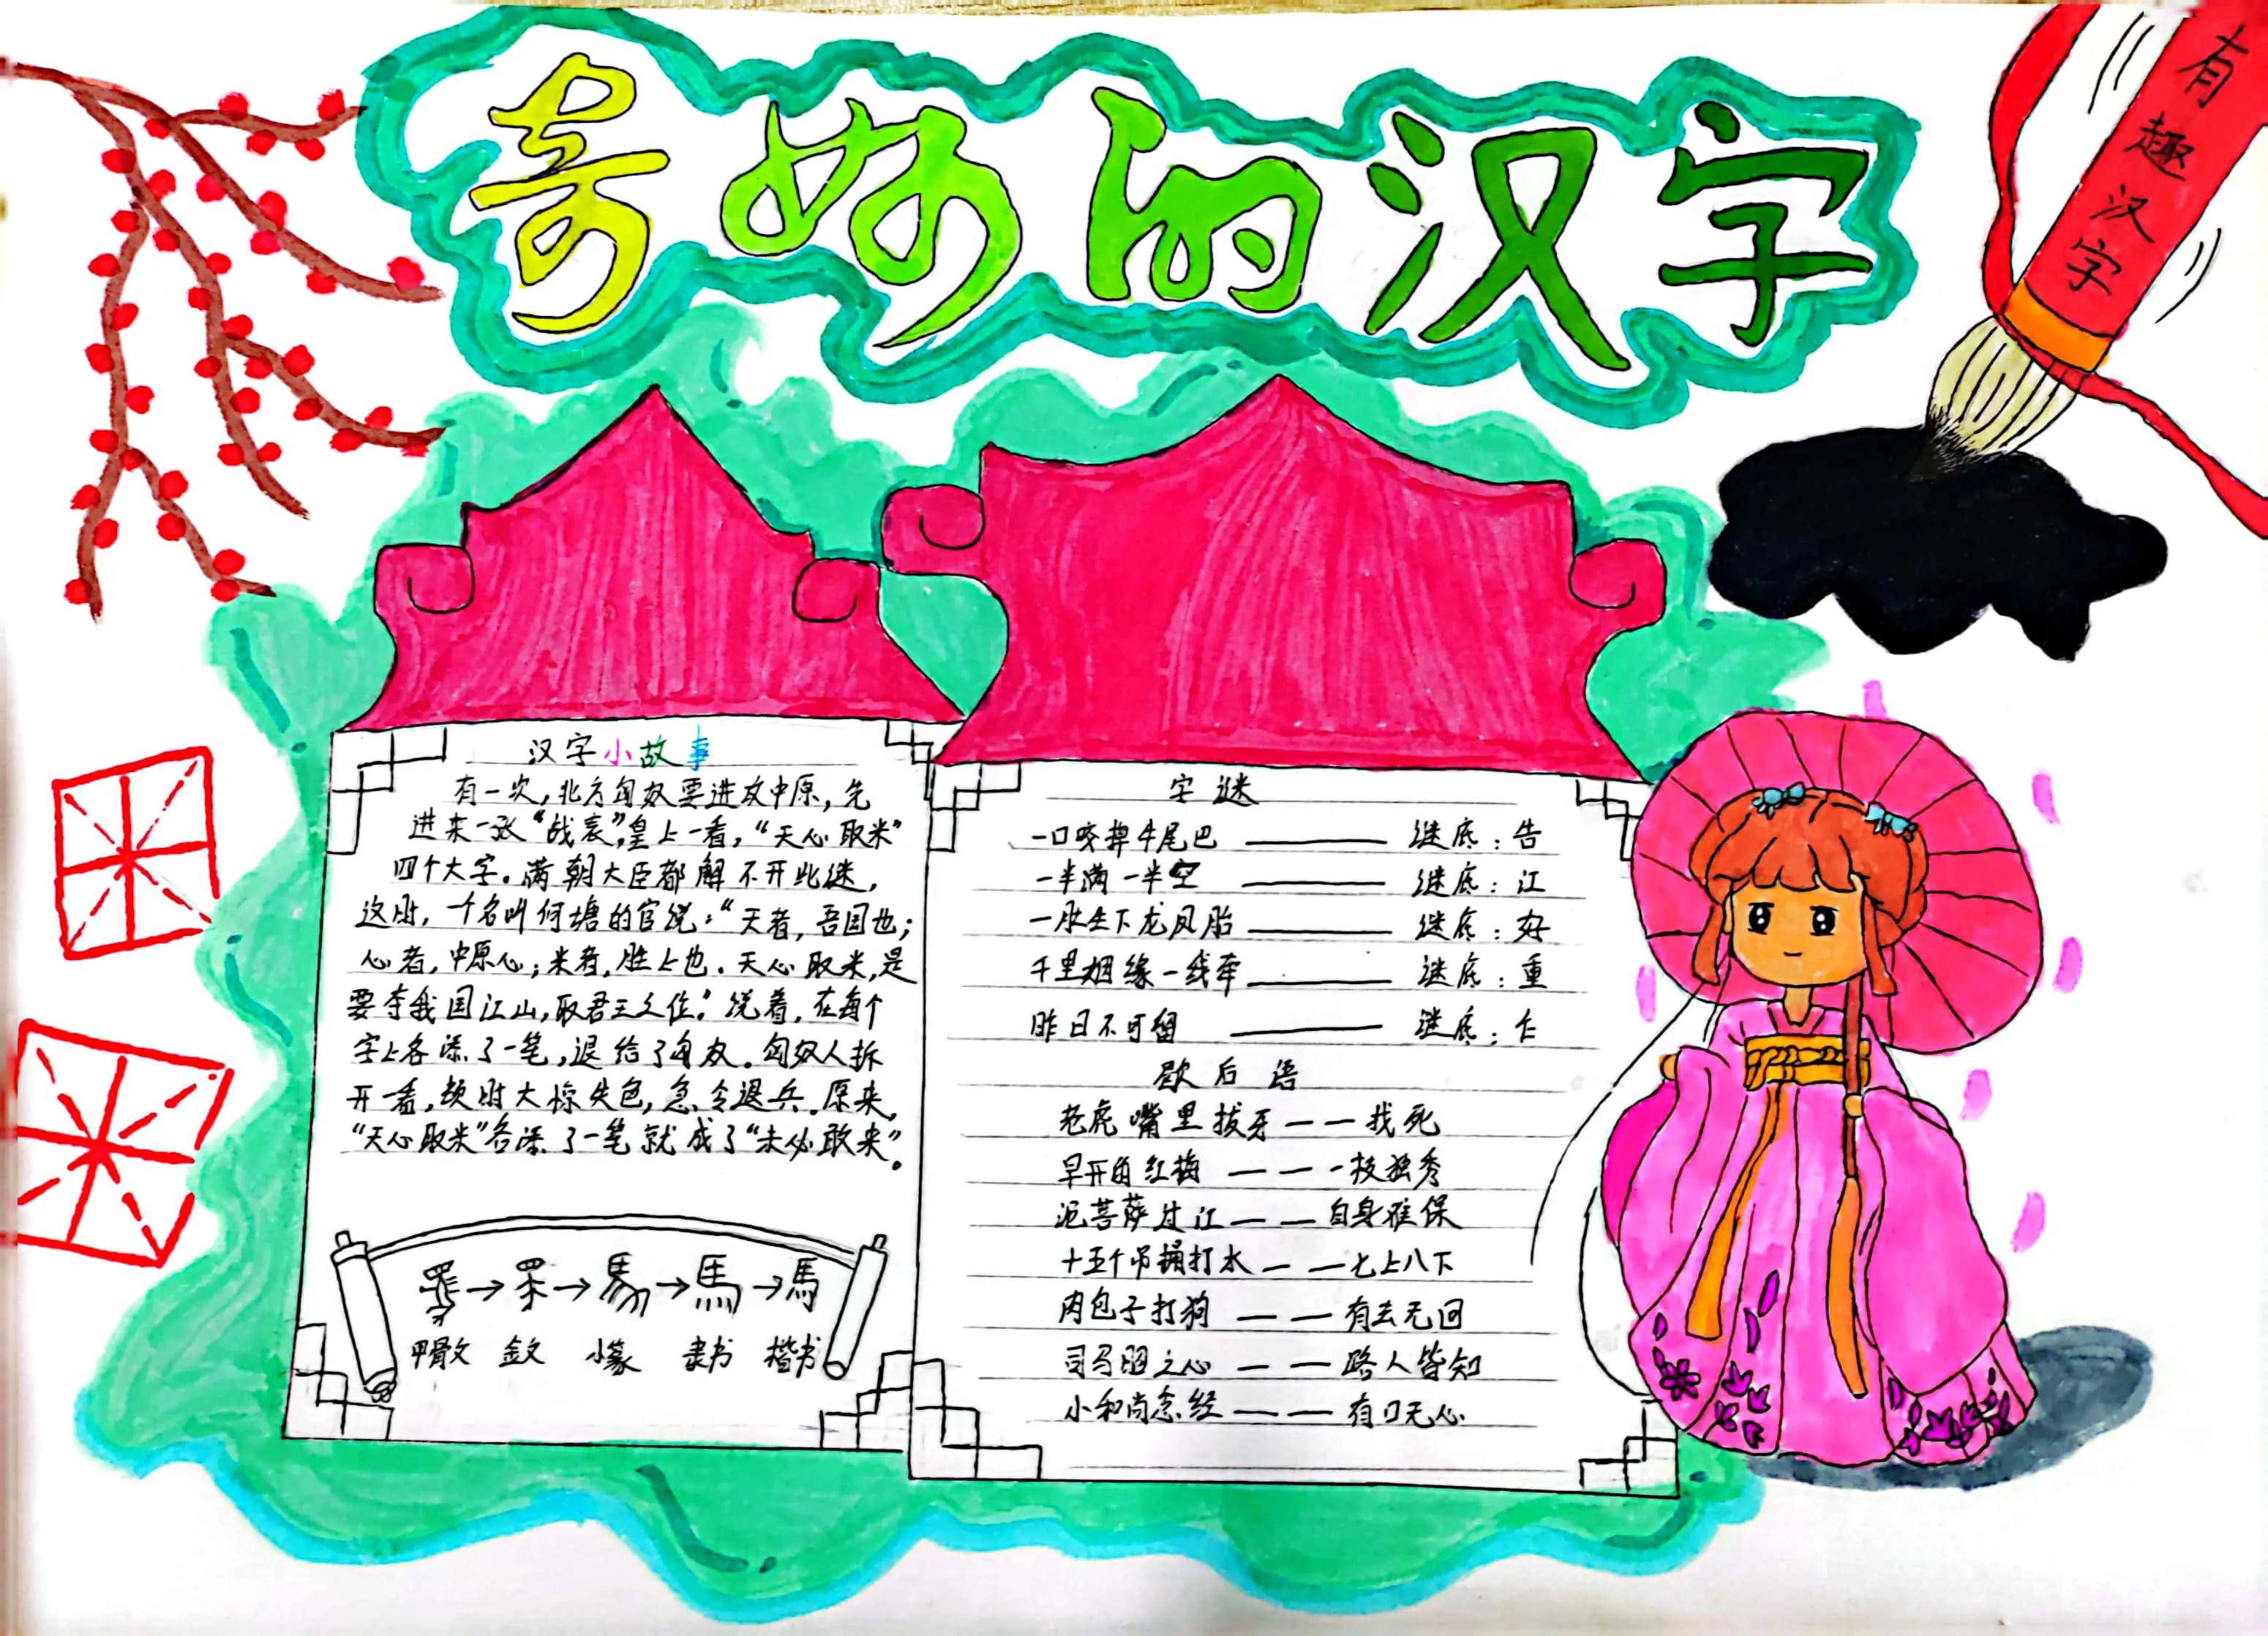 奇妙的汉字
有趣汉字
汉字小故事
有一次,北方匈奴要进攻中原,先
进来一张“战表”,皇上一看,“天心取米”
四个大字。满朝大臣都解不开此迷,
这时,一个名叫何塘的官说:“天者,吾国也;
心者,中原心;米者,胜上也。天心取米,是
要夺我国江山,取君王之位。”说着,在每个
字上各添了一笔,退给了匈奴。匈奴人拆
开一看,顿时大惊失色,急令退兵。原来,
“天心取米”各添了一笔就成了“未必敢来”。
甲骨文 金文 小篆 隶书 楷书
字谜
一口咬掉牛尾巴 ——— 谜底:告
一半满一半空 ——— 谜底:江
一胎生下龙凤胎 ——— 谜底:好
千里姻缘一线牵 ——— 谜底:重
昨日不可留 ——— 谜底:乍
歇后语
老虎嘴里拔牙——找死
早开的红梅——一枝独秀
泥菩萨过江——自身难保
十五个吊桶打水——七上八下
肉包子打狗——有去无回
司马昭之心——路人皆知
小和尚念经——有口无心